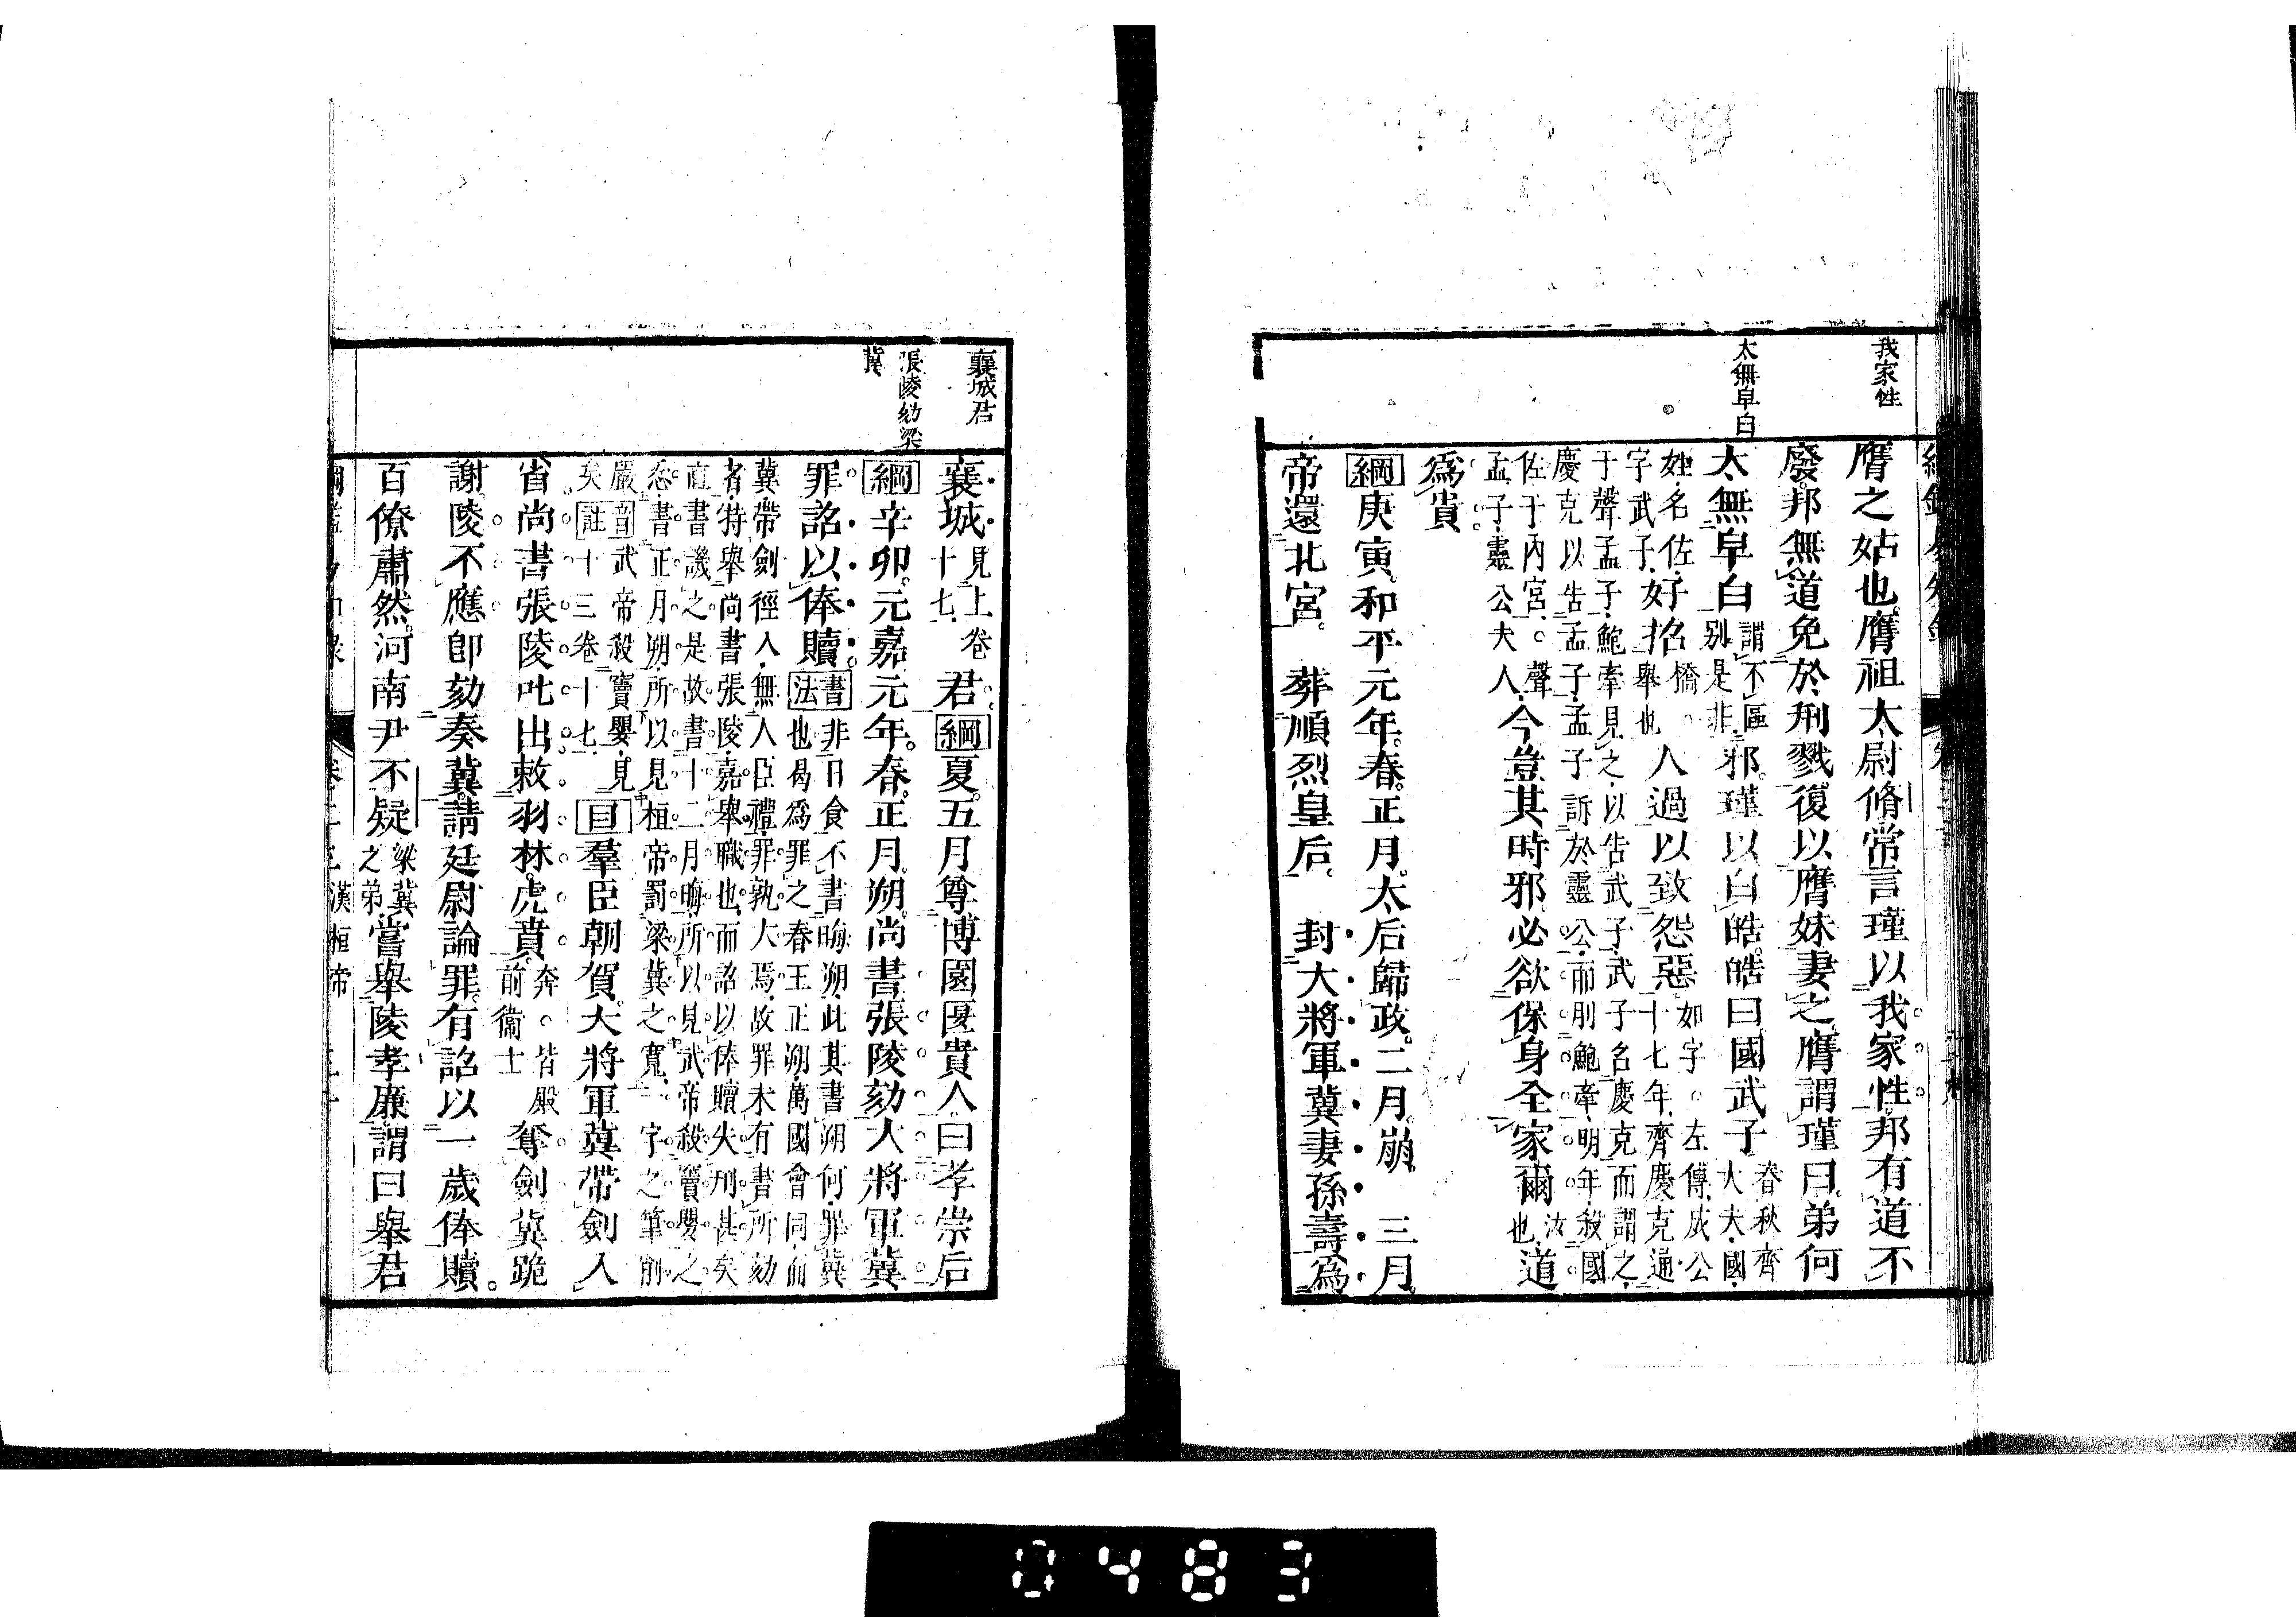 我家性
太無皁白
膺之姑也膺祖太尉脩常言瑾以我家性邦有道不
廢邦無道免於刑戮復以膺妹妻之膺謂瑾曰弟何
太無皁白謂不區別是非邪瑾以白皓皓曰國武子春秋齊大夫國
姓名佐好招橋舉也人過以致怨惡如字左傳成公十七年齊慶克通
字武子
于聲孟子鮑牽見之以告武子武子名慶克而謂之
慶克以告孟子孟子訴於靈公而刖鮑牽明年殺國
佐于內宮聲孟子靈公夫人今豈其時邪必欲保身全家爾汝也道
爲貴
綱庚寅和平元年春正月太后歸政二月崩 三月
帝還北宮 葬順烈皇后 封大將軍冀妻孫壽爲
襄城君
張陵劾梁冀
襄城見上卷十七君綱夏五月尊博園匽貴人曰孝崇后
綱辛卯元嘉元年春正月朔尚書張陵劾大將軍冀
罪詔以俸贖書法非日食不書晦朔此其書朔何罪冀也曷爲罪之春王正朔萬國會同而
冀帶劍徑入無人臣禮罪孰大焉故罪未有書所劾
者特舉尚書張陵嘉舉職也而詔以俸贖失刑甚矣
直書譏之是故書十二月晦所以見武帝殺竇嬰之
忿書正月朔所以見桓帝罰梁冀之寬一字之筆削
嚴矣音武帝殺竇嬰見註十三卷十七目羣臣朝賀大將軍冀帶劍入
省尚書張陵叱出敕羽林虎賁奔皆殿前衞士奪劍冀跪
謝陵不應卽劾奏冀請廷尉論罪有詔以一歲俸贖
百僚肅然河南尹不疑梁冀之弟嘗舉陵孝廉謂曰舉君
漢桓帝
0483